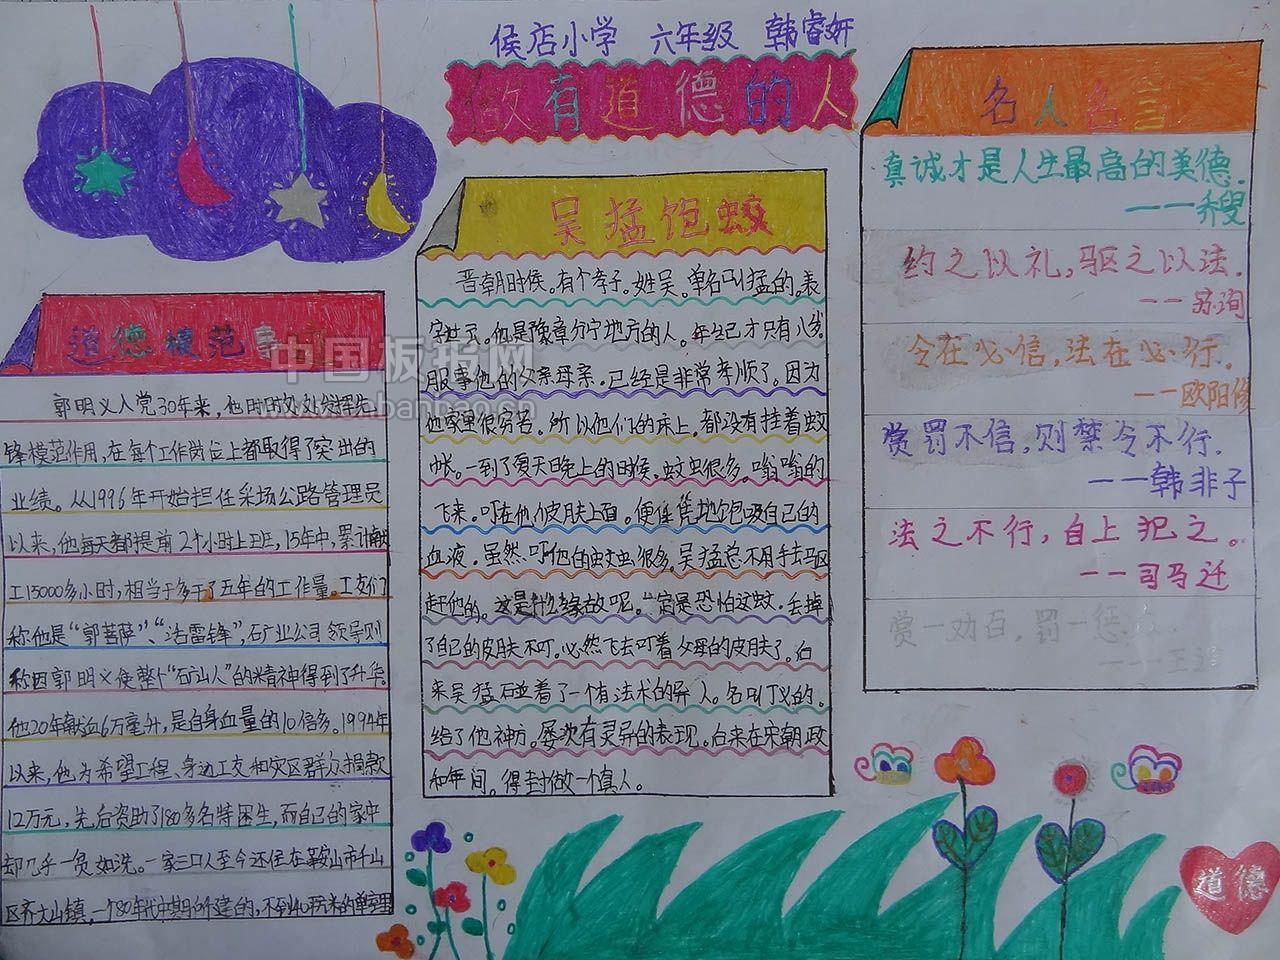 侯店小学 六年级 韩睿妍
做有道德的人
道德模范事
郭明义入党30年来,他时时处处发挥先
锋模范作用,在每个工作岗位上都取得了突出的
业绩。从1996年开始担任采场公路管理员
以来,他每天都提前2个小时上班,15年中,累计献
工15000多小时,相当于多干了五年的工作量。工友们
称他是“郭菩萨”、“活雷锋”,矿业公司领导则
称因郭明义使整个“矿山人”的精神得到了升华。
他20年献血6万毫升,是自身血量的10倍多。1994年
以来,他为希望工程、身边工友和灾区群众捐款
12万元,先后资助了180多名特困生,而自己的家中
却几乎一贫如洗。一家三口人至今还住在鞍山市千山
区齐大山镇,一个80年代中期所建的,不到40平米的单室里
吴猛饱蚊
晋朝时侯。有个孝子。姓吴。单名叫猛的。表
字世云。他是豫章分宁地方的人。年纪才只有八岁
服事他的父亲母亲。已经是非常孝顺了。因为
他家里很穷苦。所以他们的床上。都没有挂着蚊
帐。一到了夏天晚上的时候。蚊虫很多。嗡嗡的
飞来。叮在他们皮肤上面。便任凭地饱吸自己的
血液。虽然叮他的蚊虫很多。吴猛总不用手去驱
赶他的。这是什么缘故呢。一定是恐怕这蚊。去掉
了自己的皮肤不叮。必然飞去叮着父母的皮肤了。后
来吴猛碰着了一个有法术的异人。名叫丁义的。
给了他神方。屡次有灵异的表现。后来在宋朝政
和年间。得封做一个真人。
名人名言
真诚才是人生最高的美德.
——乔叟
约之以礼,驱之以法.
——苏洵
令在必信,法在必行.
——欧阳修
赏罚不信,则禁令不行.
——韩非子
法之不行,自上犯之。
——司马迁
赏一劝百,罚一惩
——王
道德
中国板报网